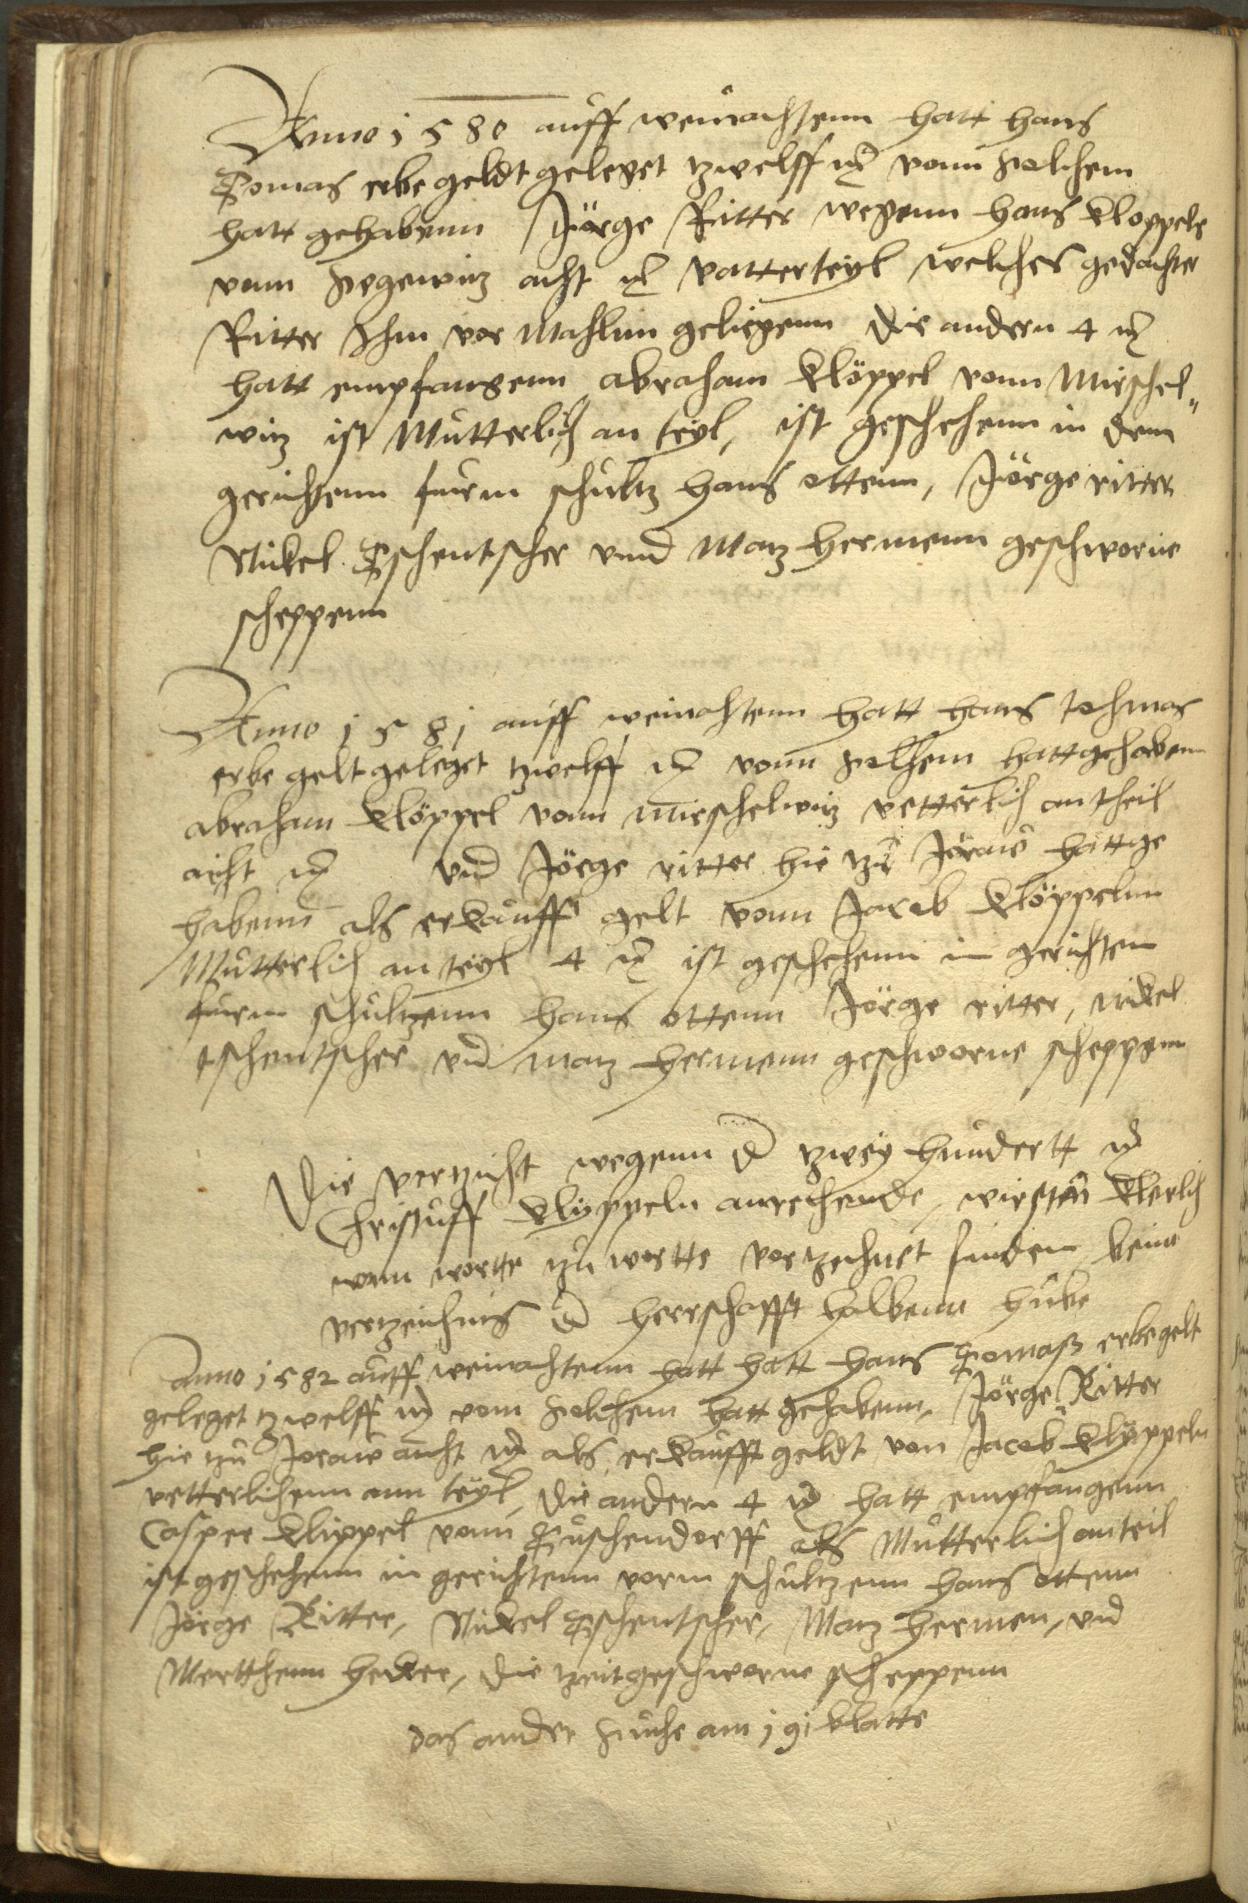 Anno 1580 auff weinachtenn hatt hans
Tomas erbe geldt geleget tzwelff mk vonn solchem
hatt gehabenn Jörge Ritter wegenn hans kloppels
vonn Segewitz acht mk vatterteyl welches gedachter
Ritter Ihm vor Mahlnn geliegenn die andern 4 mk
hatt empfangenn abraham klöppel vonn Mirschel"
witz ist Mutterlich an teyl, ist geschehenn in denn
gerichtenn fuirm schultz hans ottenn, Jörge ritter
Nickel Tschentscher vnnd Matz Hermenn geschworne
scheppenn
Anno 1581 auff weinachtenn hatt hans tohmas
erbe gelt geleget tzwelff mk vonn solhem hatt gehabenn
abraham klöppel vonn Mirschelwitz vetterlich antheil
acht mk vnd Jörge ritter hie tzu Jeraw hatt ge
habenn als erkaufft gelt vonn Jacob klöppelnn
Mutterlich an teyl 4 mk ist geschehenn in gerichten
fuirm schultzenn hans ottenn Jörge ritter, nickel
tschentscher vnd matz hermenn geschworne scheppenn
Die vertzicht wegenn d tzwey hundertt mk
Christuff klippeln anrechende, wirstu klerlich
vonn wortte tzu wortte vortzechnet finden beim
vertzeichnus d herrschafft halbenn hube
Anno 1582 auff weinachtenn hatt hatt hans Tomas erbegelt
geleget tzwelff mk vom solchem hatt gehabenn, Jörge Ritter
hie tzu Jeraw acht mk als erkaufft geldt von Jacob klippeln
vetterlichenn ann teyl, die andern 4 mk hatt empfangenn
Casper klippel vonn Tuschendorff als Mutterlich anteil
ist geschehenn in gerichtenn vorm schultzenn hans ottenn
Jörge Ritter, Nickel Tschentscher, Matz Hermen, vnd
Mertthenn Hecker, die tzeit geschworne scheppenn
das ander suche am 191 blatte